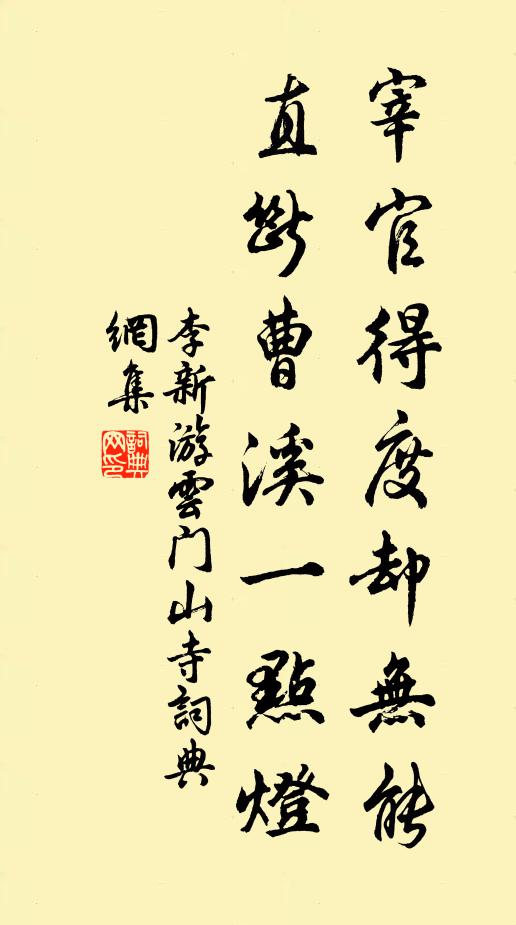 宰官得度却無能
直斷曹溪一點燈
李新游雲门山寺詞典
網集
詞典網印